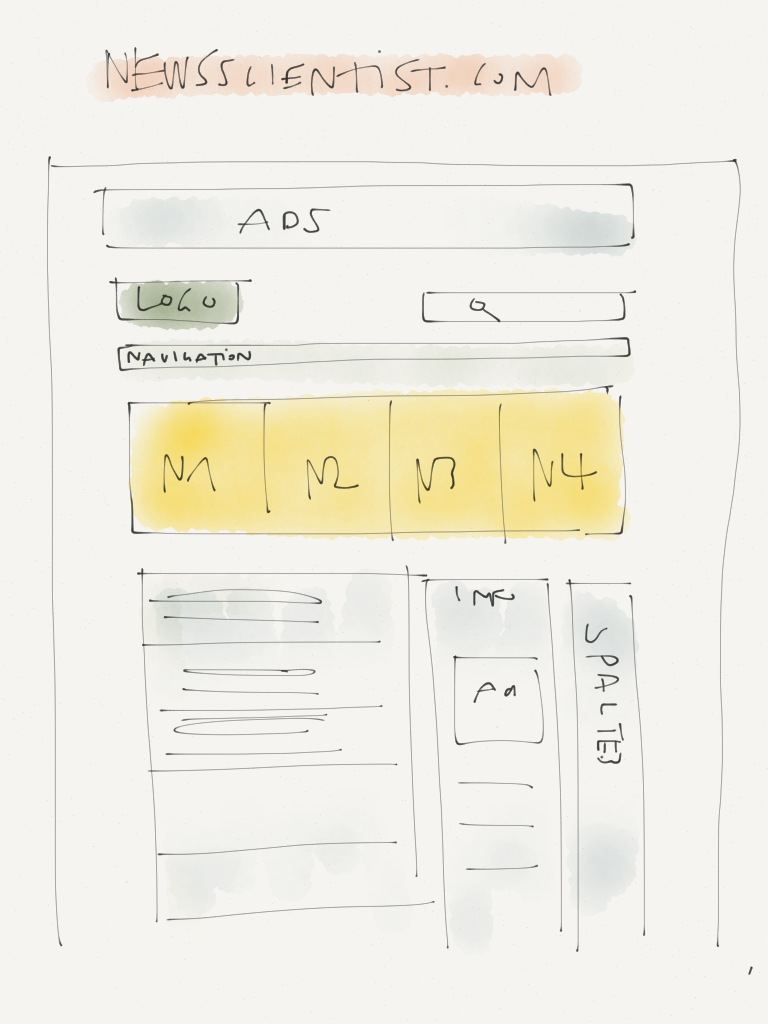 NEWSSCIENTIST.COM
ADS
LOGO
NAVIGATION
N1 N2 N3 N4
INFO
Ad
SPALTE3